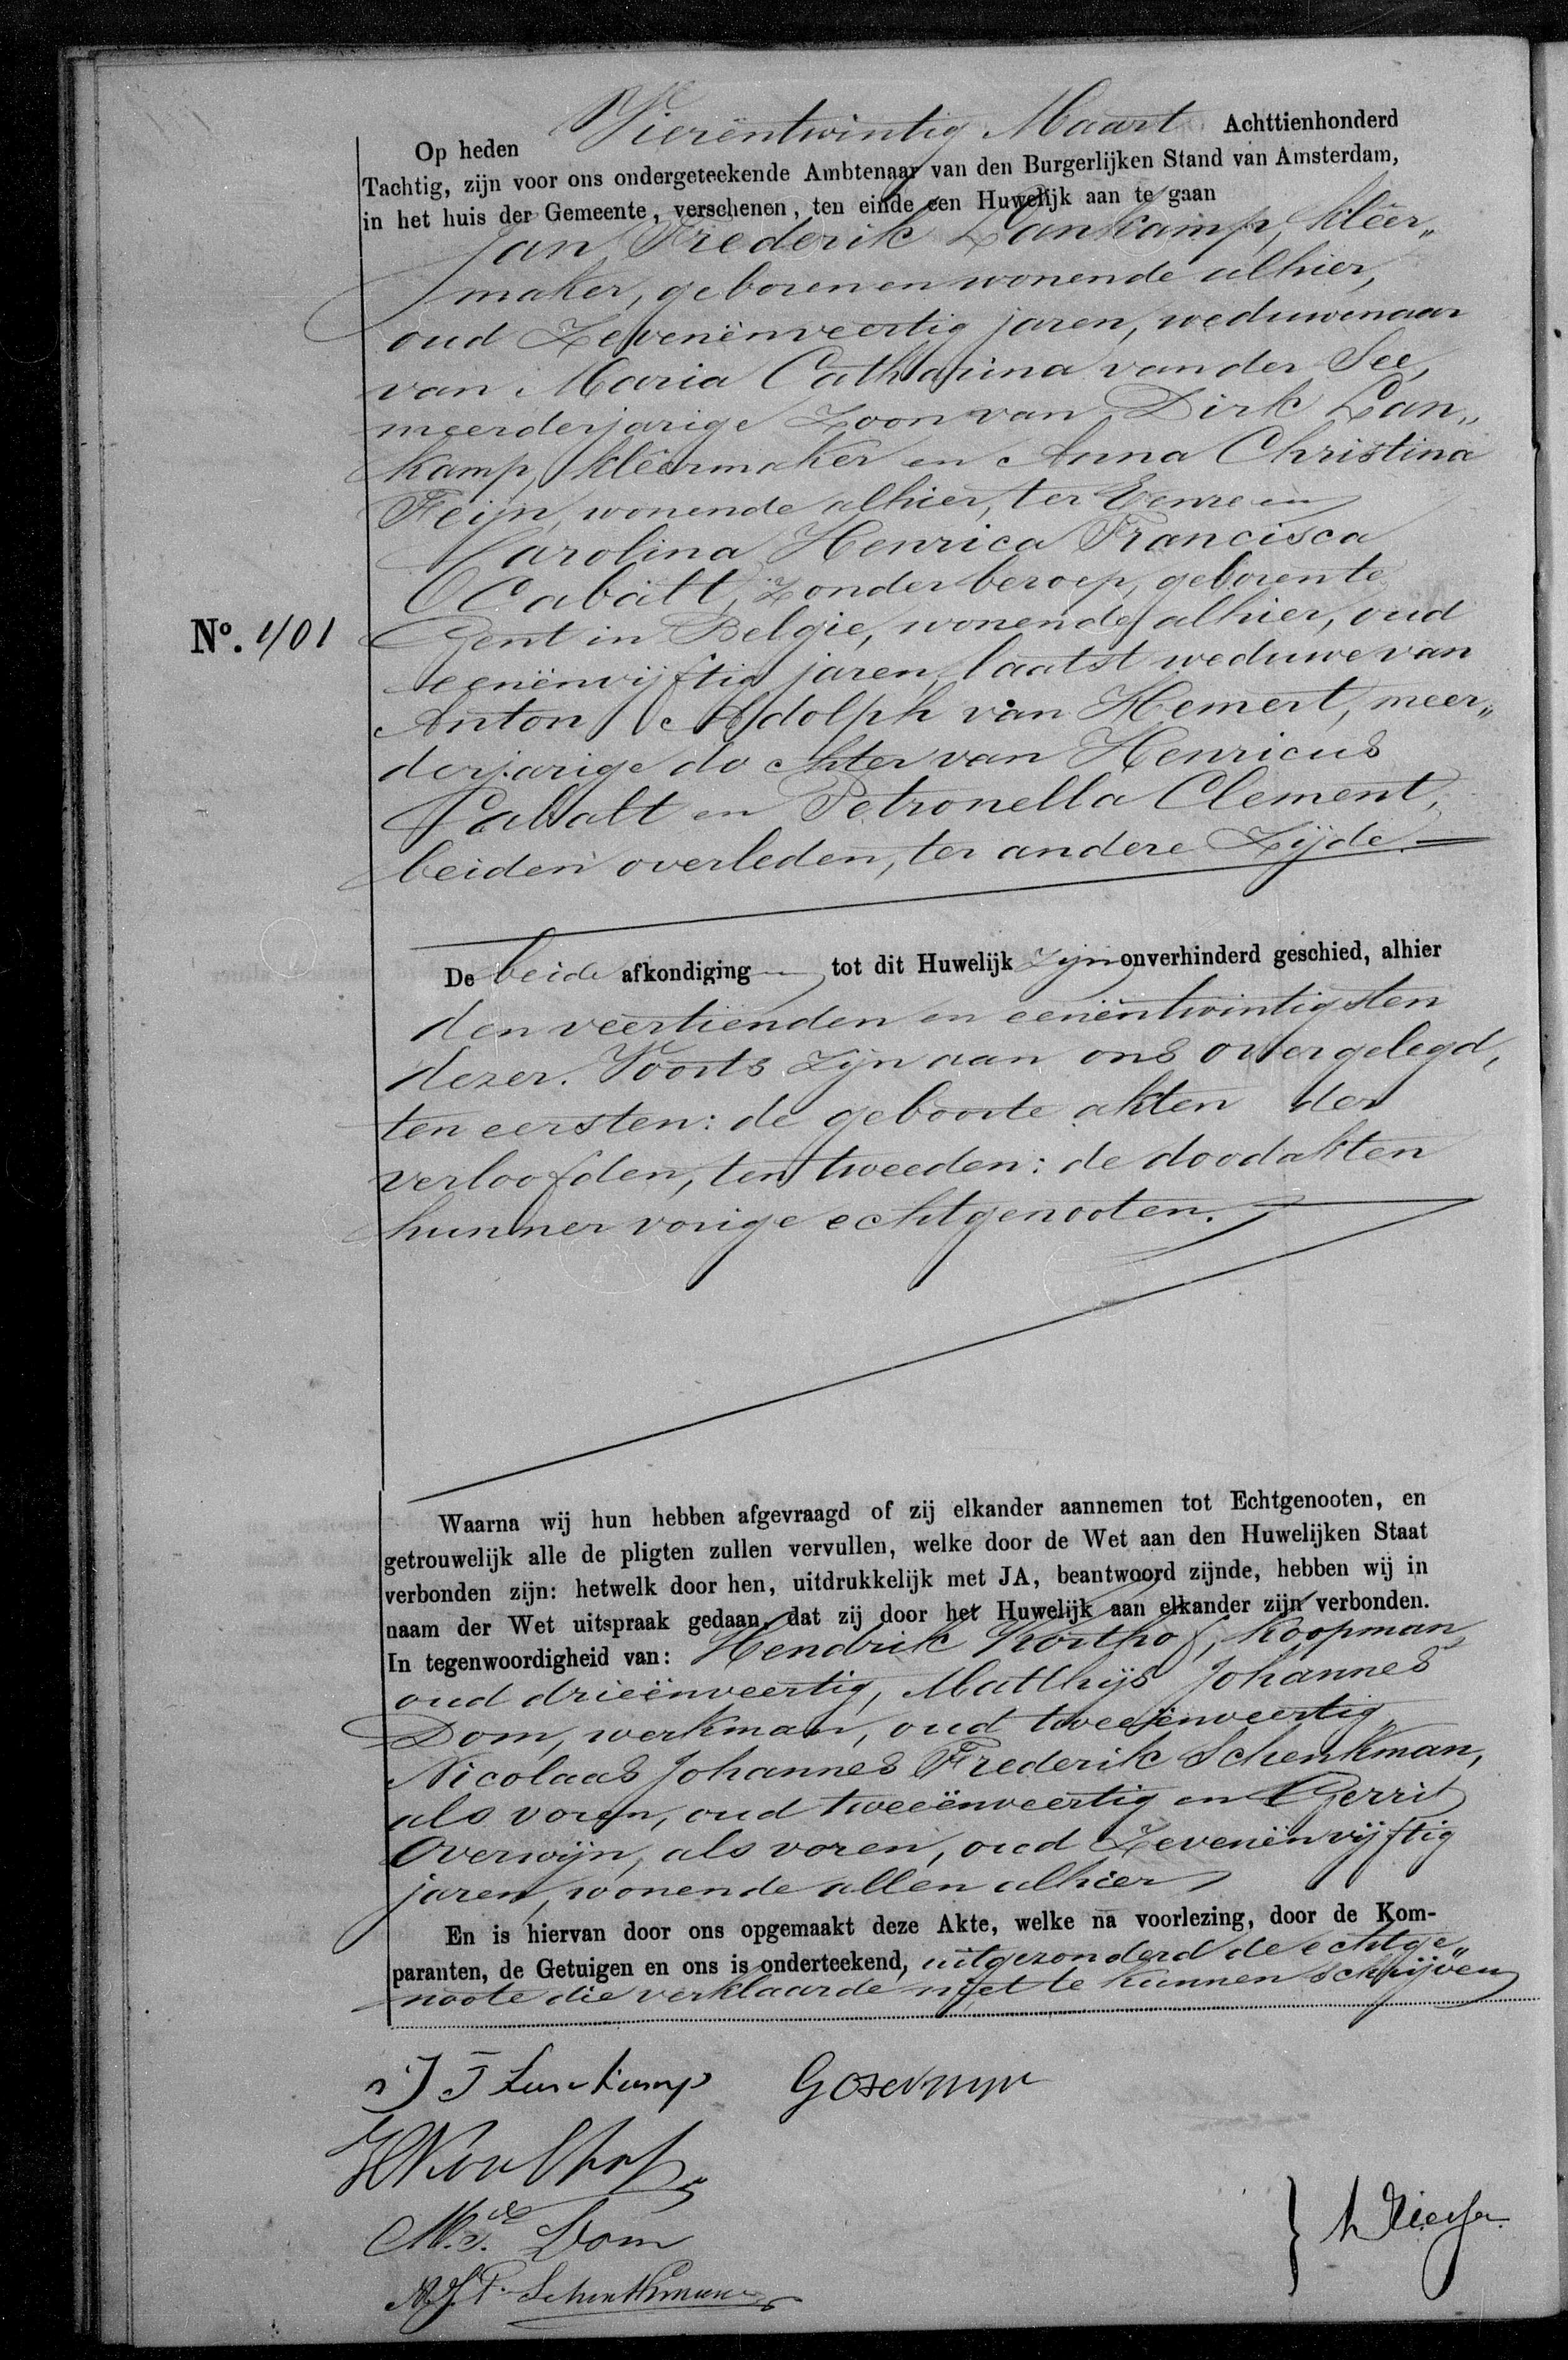 Op heden Vierentwintig Maart Achttienhonderd
Tachtig, zijn voor ons ondergeteekende Ambtenaar van den Burgerlijken Stand van Amsterdam,
in het huis der Gemeente, verschenen, ten einde een Huwelijk aan te gaan
Jan Frederik Lankamp, kleer„
maker, geboren en wonende alhier,
oud Zevenënveertig jaren, weduwenaar
van Maria Catharina van der See,
meerderjarige Zoon van Dirk Lan„
kamp, kleermaker en Anna Christina
Feijn, wonende alhier, ter Eenre en
Carolina Henrica Francisca
Cabalt, Zonder beroep, geboren te
Gent in Belgie, wonende alhier, oud
eenënvijftig jaren, laatst weduwe van
Anton Adolph van Hemert, meer„
derjarige dochter van Henricus
Cabalt en Petronella Clement,
beiden overleden, ter andere Zijde.
No. 401
De beide afkondigingen tot dit Huwelijk zijn onverhinderd geschied, alhier
den veertienden en eenëntwintigsten
dezer. Voorts zijn aan ons overgelegd,
ten eersten: de geboorte akten der
verloofden, ten tweeden: de doodakten
hunner vorige echtgenooten.
Waarna wij hun hebben afgevraagd of zij elkander aannemen tot Echtgenooten, en
getrouwelijk alle de pligten zullen vervullen, welke door de Wet aan den Huwelijken Staat
verbonden zijn: hetwelk door hen, uitdrukkelijk met JA, beantwoord zijnde, hebben wij in
naam der Wet uitspraak gedaan, dat zij door het Huwelijk aan elkander zijn verbonden.
In tegenwoordigheid van: Hendrik Korthof, koopman,
oud drieënveertig, Matthijs Johannes
Dom, werkman, oud tweeënveertig,
Nicolaas Johannes Frederik Schenkman,
als voren, oud tweeënveertig en Gerrit
Overwijn, als voren, oud Zevenënvijftig
jaren, wonende allen alhier
En is hiervan door ons opgemaakt deze Akte, welke na voorlezing, door de Kom-
paranten, de Getuigen en ons is onderteekend, uitgezonderd de echtge„
noote die verklaarde niet te kunnen schrijven
J F Lankamp G Overwijn
H Korthof
M. J. Dom
N. J. F. Schenkman